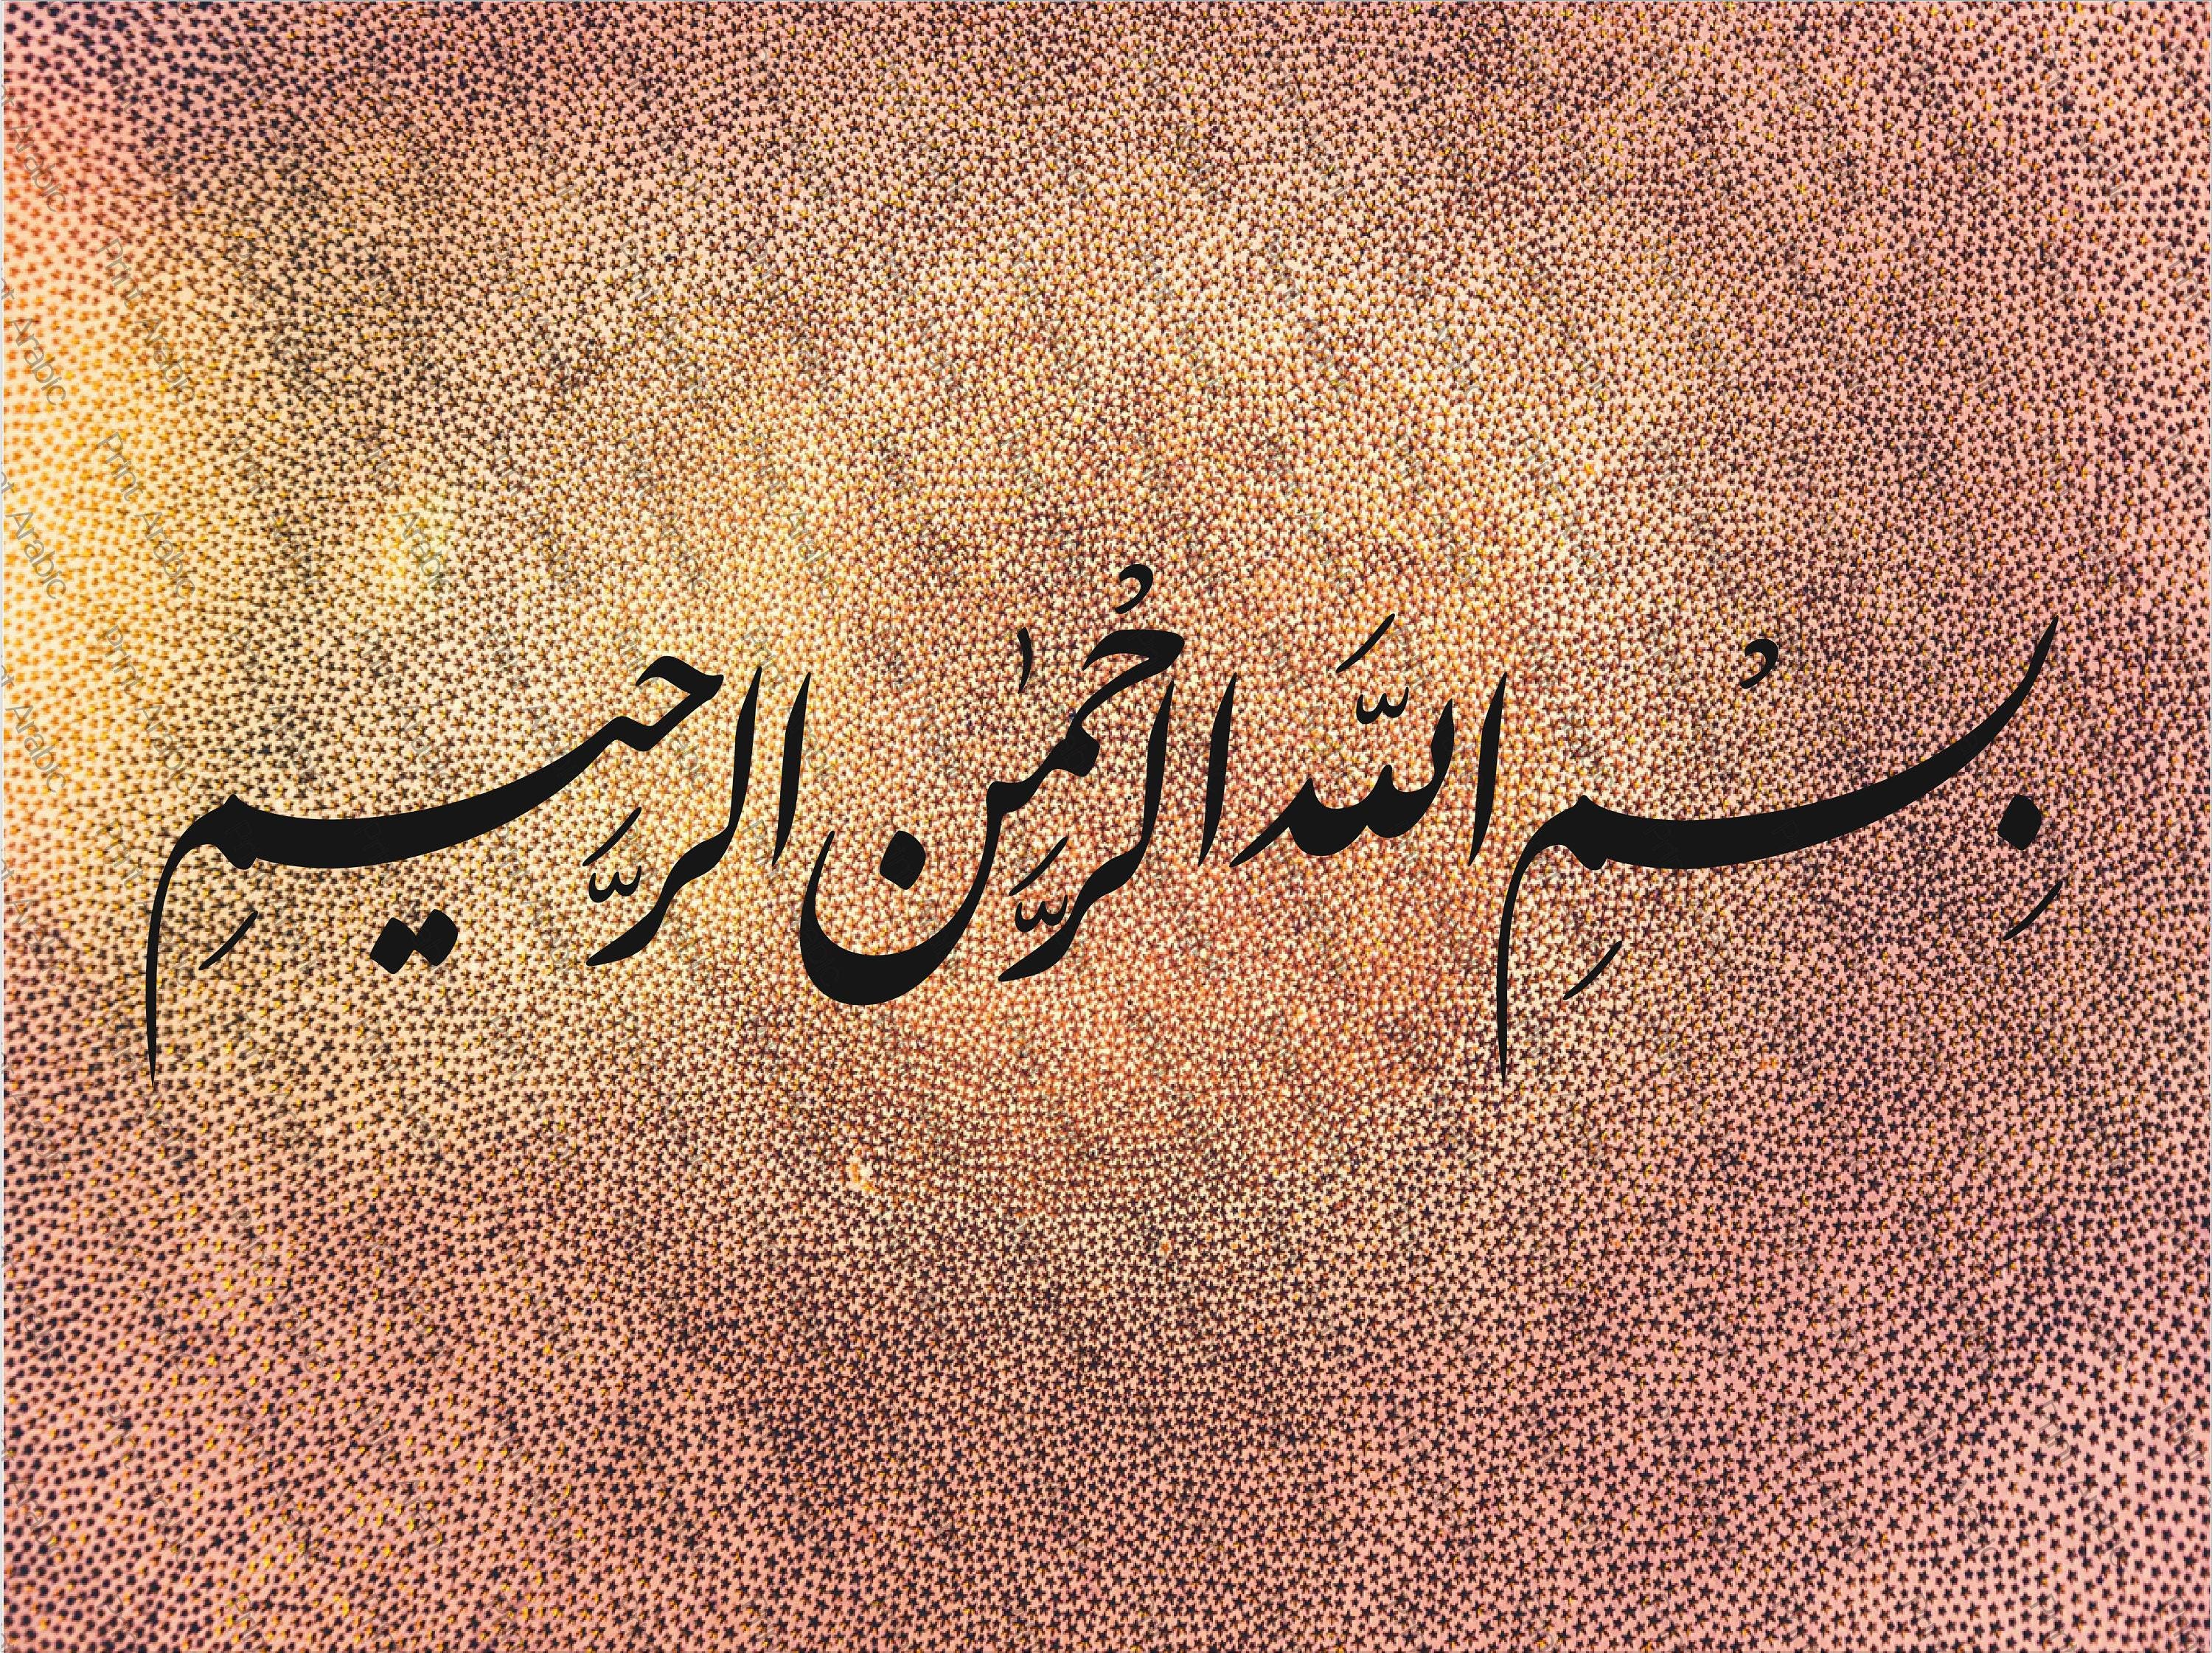 بِسْمِ اللَّهِ الرَّحْمٰنِ الرَّحِيمِ
Print Arabic